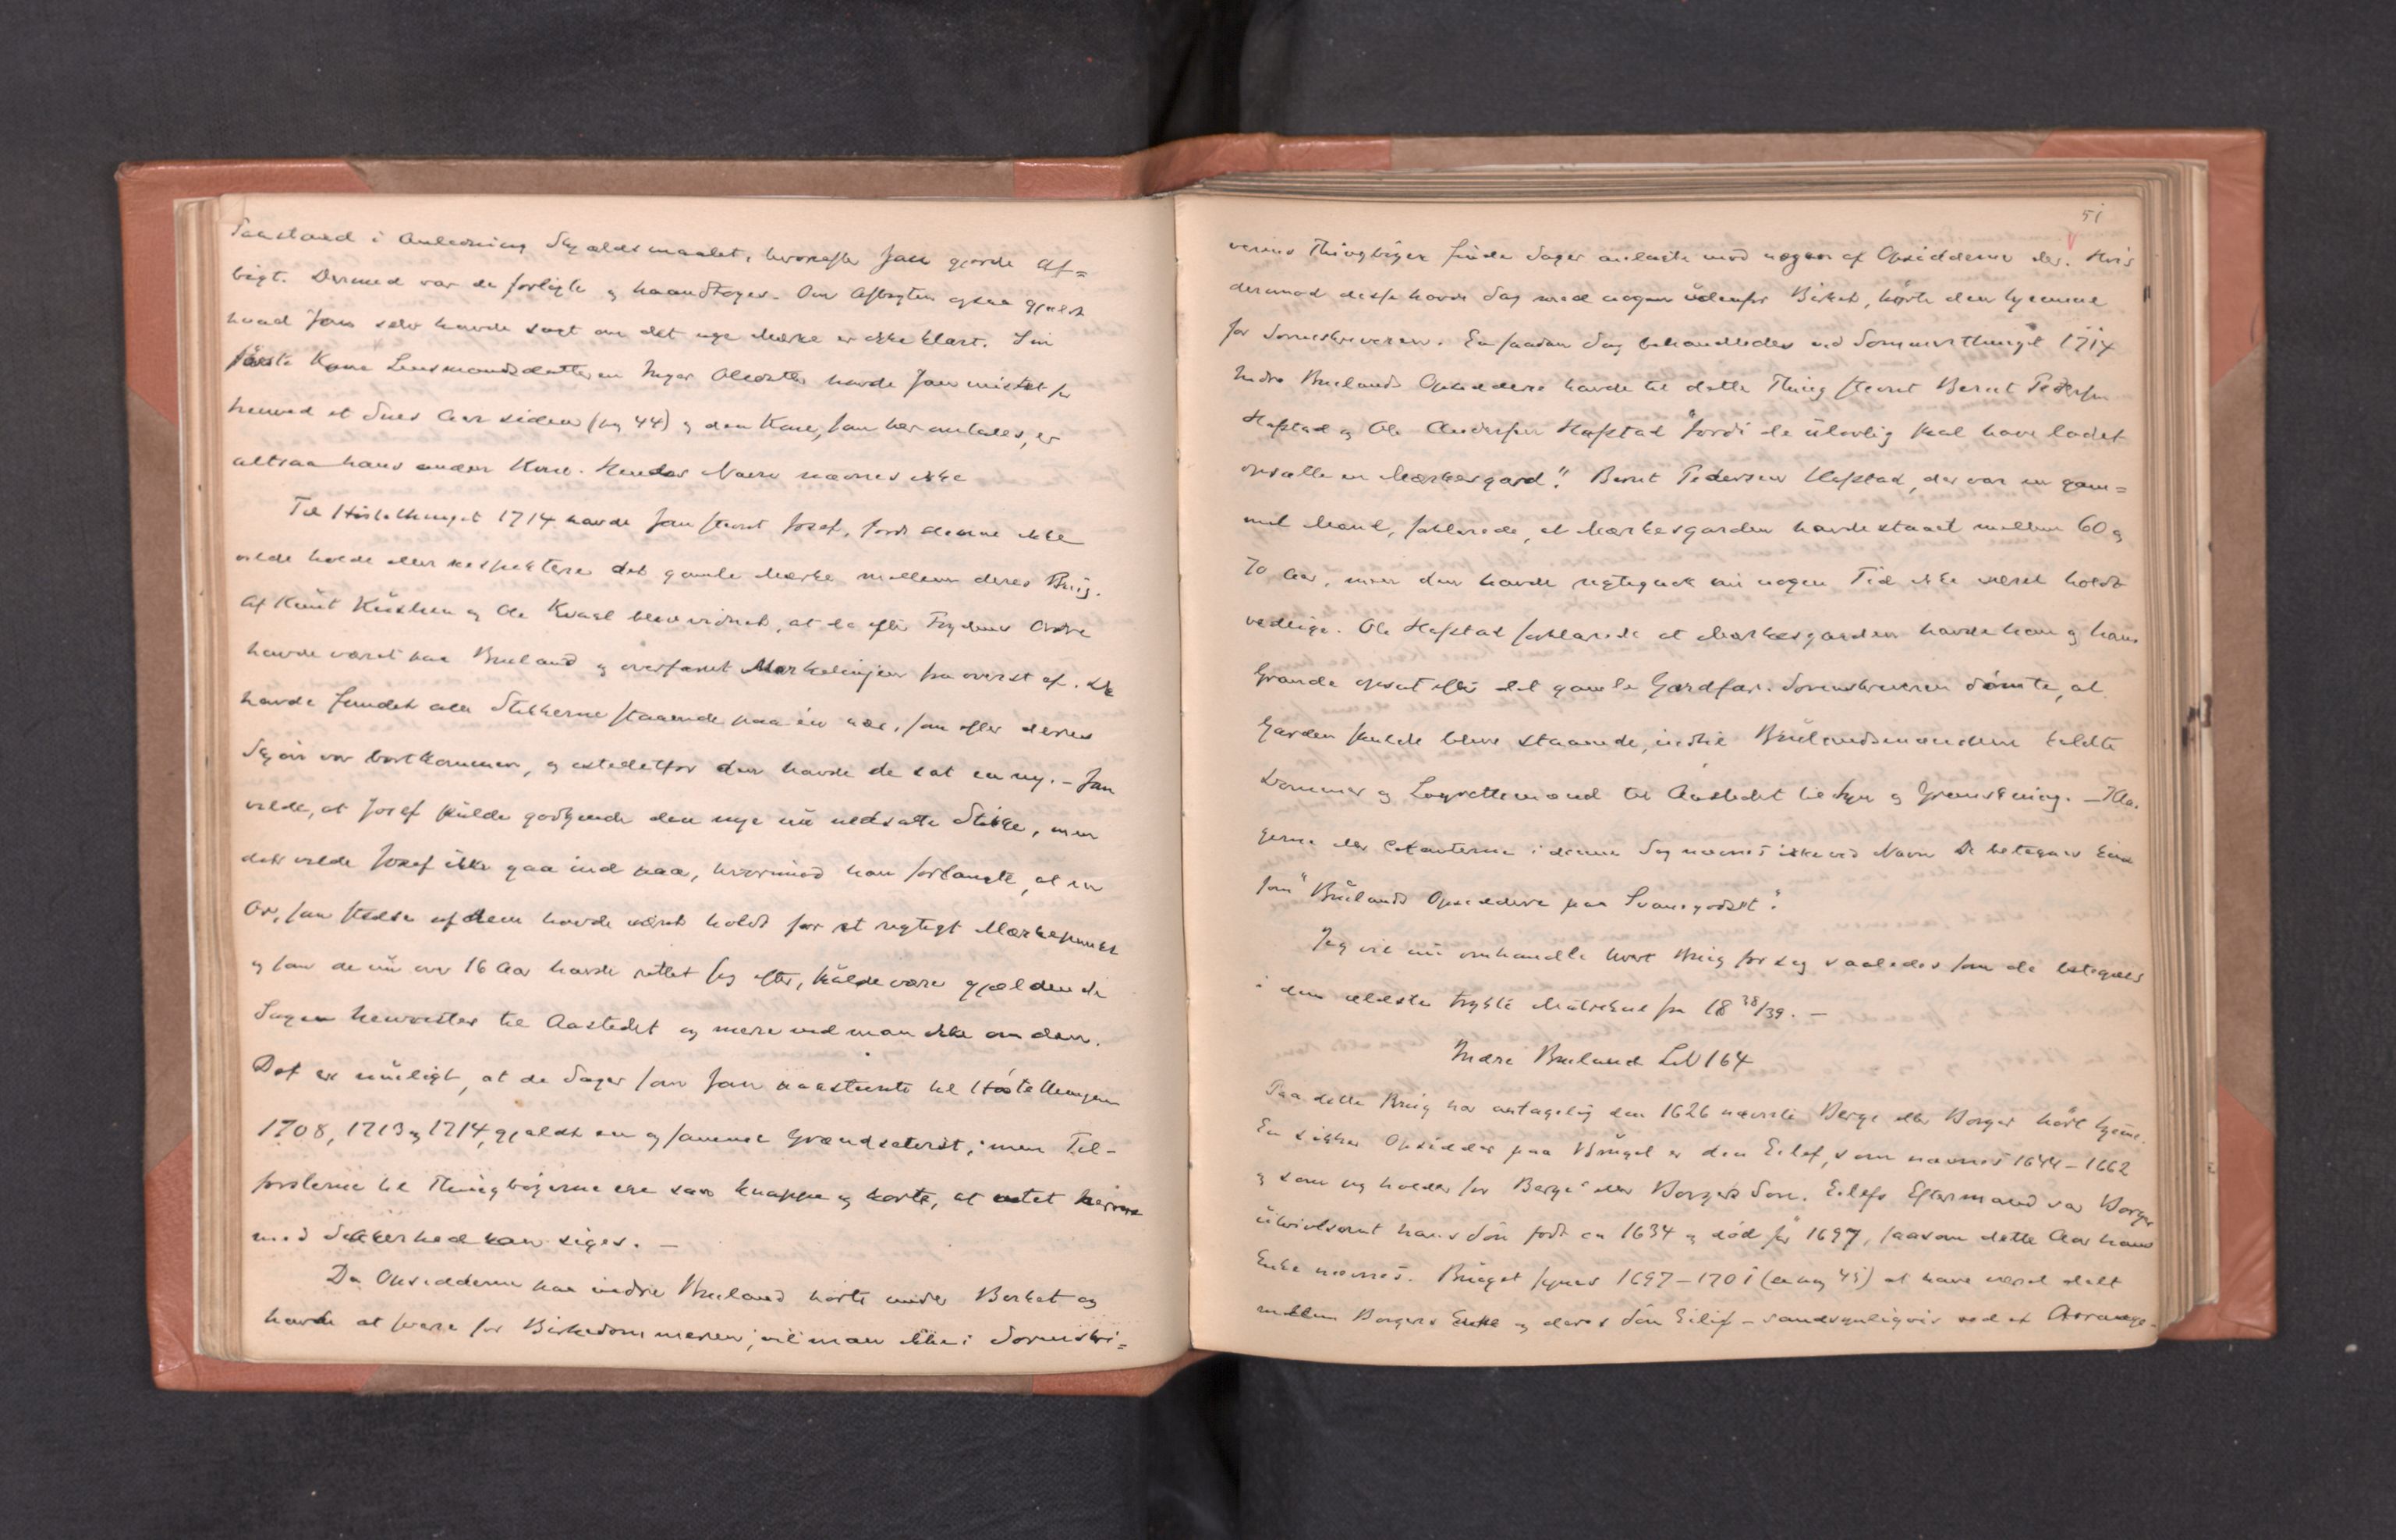 Paastand i Anledning Skjældsmaalet, hvorefter Jan gjorde Af=
bigt. Dermed var de forligte og haandtoges. Om Afbigten ogsaa gjældt
hvad Jan selv havde sagt om det nye Mærke er ikke klart. Sin
første Kone Lensmandsdatteren Inger Olsdatter havde Jan mistet for
henved et Snes Aar siden (pag 44) og den Kone, som her omtales, er
altsaa hans anden Kone. Hendes Navn nævnes ikke
Til Høstethinget 1714 havde Jan stevnt Josef, fordi denne ikke
vilde holde eller respektere det gamle Mærke mellem deres Brug.
Af Knut Kushen og Ole Kvaal blev vidnet, at de efter Fogdens Ordre
havde været paa Bruland og overfaret Markelinjen fra øverst af. De
havde fundet alle Stikkerne staaende paa én nær, som efter deres
Skjøn var bortkommen, og istedetfor den havde de sat en ny. - Jan
vilde, at Josef skulde godkjende den nye nu nedsatte Stikke, men
det vilde Josef ikke gaa ind paa, hvorimod han forlangte, at en
Or, som stedse af dem havde været holdt for et rigtigt Mærkepunkt
og som de nu over 16 Aar havde rettet sig efter, skulde være gjældende
Sagen henvistes til Aastedet og mere ved man ikke om den.
Det er muligt, at de Sager som Jan paastevnte til Høstethingene
1708, 1713 og 1714, gjældt en og samme Grændsetvist; men Til-
førslerne til Thingbøgerne ere saa knappe og korte, at intet herom
med Sikkerhed kan siges. -
Da Opsidderne paa indre Bruland hørte under Birket og
havde at svare for Birkedommeren, vil man ikke i Sorenskri=
51
verens Thingbøger finde Sager anlagte mod nogen af Opsidderne der. Hvis
derimod disse havde Sag med nogen udenfor Birket, hørte den hjemme
for Sorenskriveren. En saadan Sag behandledes ved Sommerthinget 1714
Indre Brulands Opsiddere havde til dette Thing stevnt Bernt Pedersen
Hafstad og Ole Andersen Hafstad "fordi de ulovlig skal have ladet
opsætte en Mærkesgard". Bernt Pedersen Hafstad, der var en gam=
mel Mand, forklarede, at Mærkesgarden havde staaet mellem 60 og
70 Aar, men den havde rigtignok nu nogen Tid ikke været holdt
vedlige. Ole Hafstad forklarede at Mærkesgarden havde han og hans
Grande opsat efter det gamle Gardfar. Sorenskriveren dømte, at
Garden skulde blive staaende, indtil Brulandsmændene kaldte
Dommer og Lagrettemænd til Aastedet til Syn og Grænsning. - Kla-
gerne eller Citanterne i denne Sag nævnes ikke ved Navn De betegnes kun
som "Brulands Opsiddere paa Svanøgodset".
Jeg vil nu omhandle hvert Brug for sig saaledes som de betegnes
i den ældste trykte Matrikul fra 18 38/39. -
Indre Bruland LN 164
Paa dette Brug har antagelig den 1626 nævnte Berge eller Borger hørt hjemme.
En sikker Opsidder paa Bruget er den Eilef, som nævnes 1644-1662
og som jeg holder for Berge eller Borgers Søn. Eilefs Eftermand var Borger
utvivlsomt hans Søn født ca 1634 og død før 1697, saasom dette Aar hans
Enke nævnes. Bruget synes 1697-1701 (cnf pag 45) at have været delt
mellem Borgers Enke og deres Søn Eilif - sandsynligvis ved et Arrange-